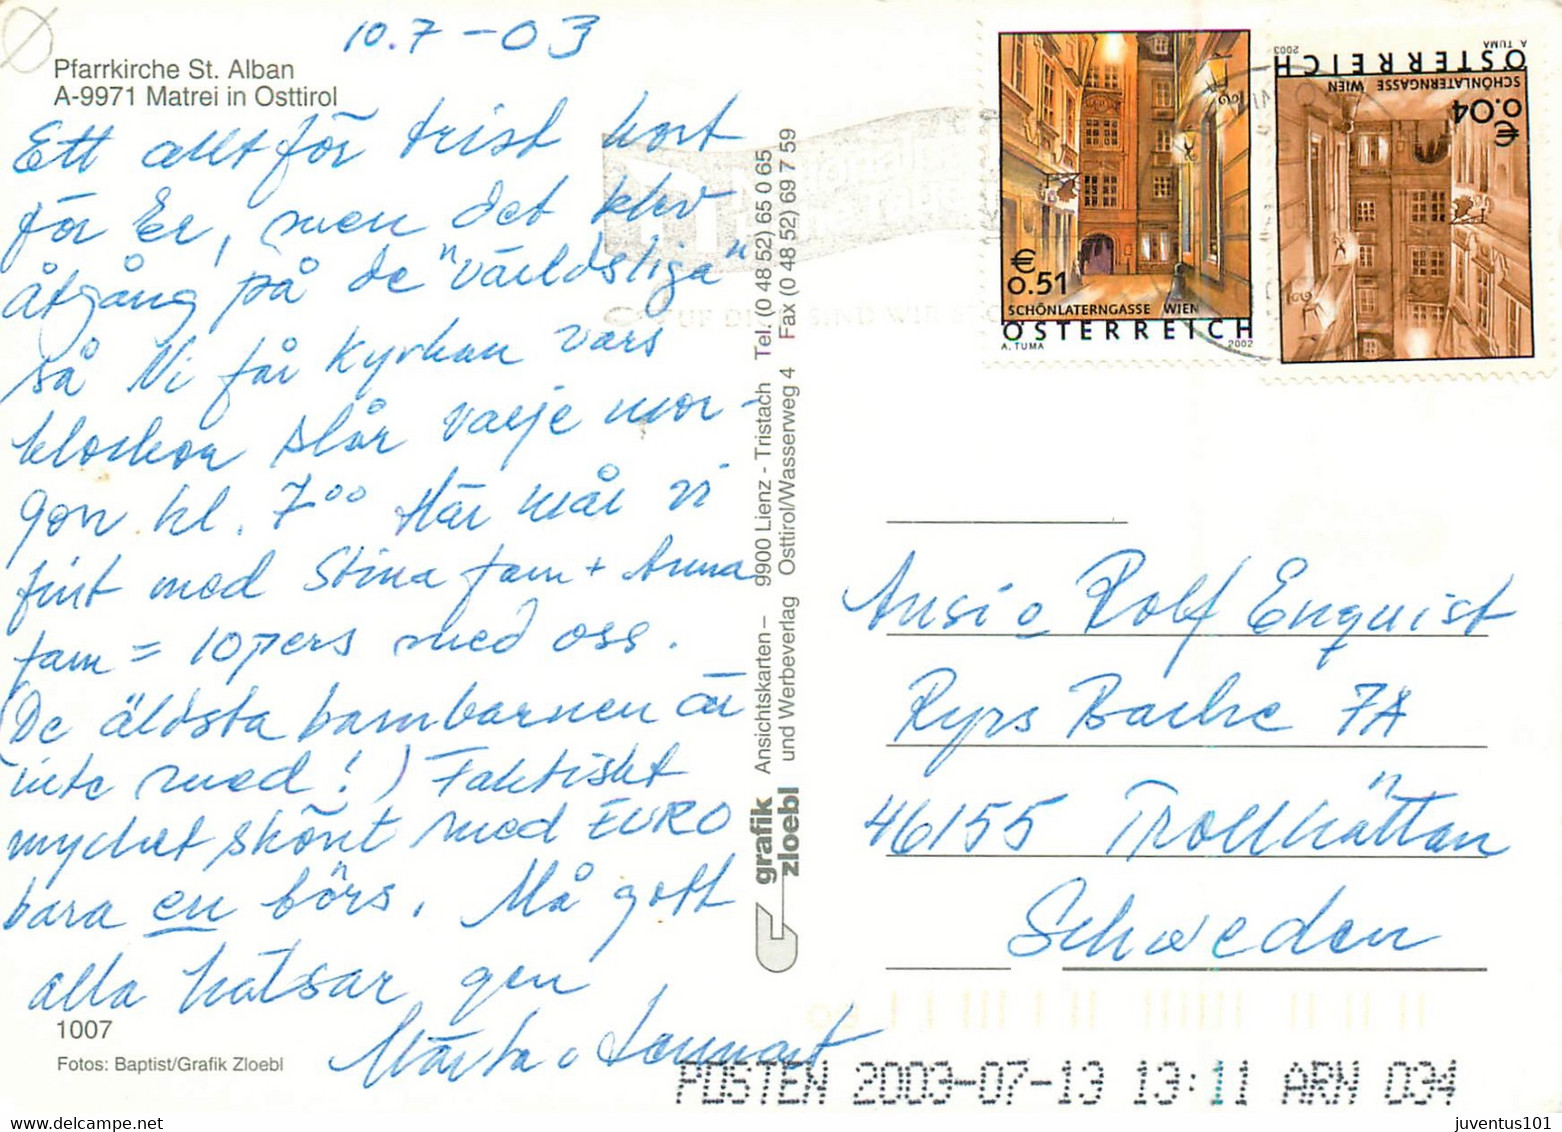 10.7 - 03
Pfarrkirche St. Alban
A-9971 Matrei in Osttirol
Ett allt för trist kort
för Er, men det blev
åtgång på de "världsliga"
så Ni får kyrkan vars
klockor slår varje mor-
gon kl. 7⁰⁰ Här mår vi
fint med Stina fam + Anna
fam = 10 pers med oss.
(De äldsta barnbarnen är
inte med!) Faktiskt
mycket skönt med EURO
bara en börs. Må gott
alla hälsar gen
Märta o Lennart
1007
Fotos: Baptist/Grafik Zloebl
grafik
zloebl
Ansichtskarten – 9900 Lienz - Tristach Tel. (0 48 52) 65 0 65
und Werbeverlag Osttirol/Wasserweg 4 Fax (0 48 52) 69 7 59
€
0.51
SCHÖNLATERNGASSE WIEN
ÖSTERREICH
A. TUMA 2002
€
0.04
SCHÖNLATERNGASSE WIEN
ÖSTERREICH
A. TUMA 2003
Ansi o Rolf Enquist
Ryrs Backe 7A
46155 Trollhättan
Schweden
POSTEN 2003-07-13 13:11 ARN 034
juventus101